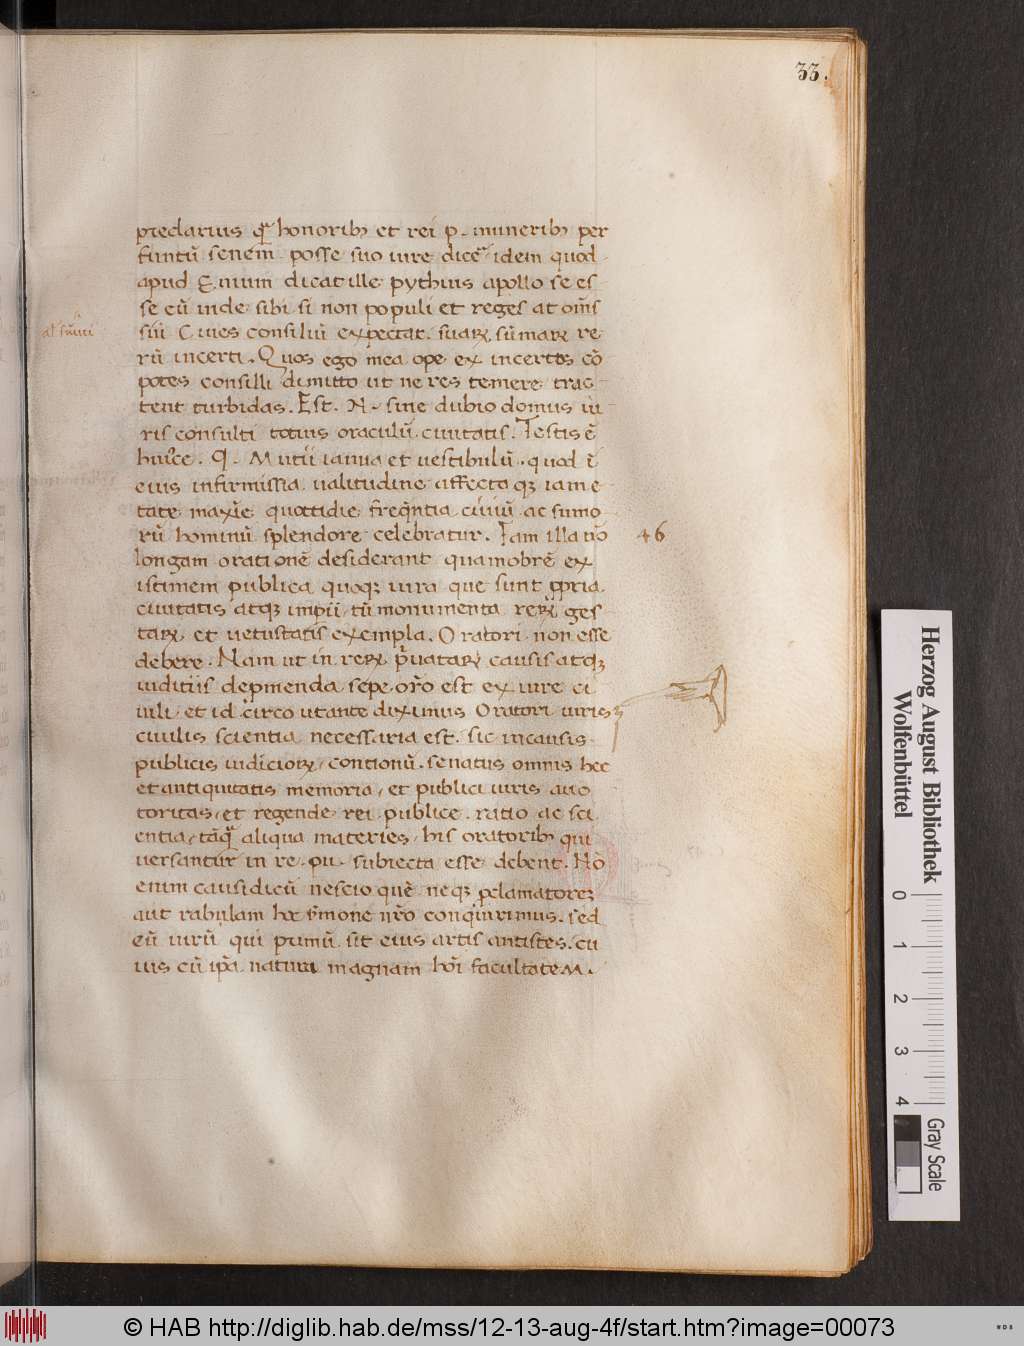 33.
preclarius q̃ honorib; et rei p. muneribʒ per
functũ senem posse suo iure dicẽ idem quod
apud Ennium dicat ille pythius apollo se es
se eũ inde sibi si non populi et reges at om̃s
sui Cives consiliũ expectant suarꝝ sũmarꝝ re
al sũmi
rũ incerti. Quos ego mea ope ex incertos cõ
potes consilii dimitto ut ne res temere trac
tent turbidas. Est. N. sine dubio domus iu
ris consulti totius oraculũ civitatis. Testis ẽ
huiꝰce. Q. Mutii ianua et vestibulũ. quod ĩ
eius infirmissia valitudine affectaqʒ iam e
tate maxĩe quottidie freq̃ntia civiũ ac sumo
rũ hominũ splendore celebratur. Iam illa nõ
46
longam orationẽ desiderant quamobrẽ ex
istimem publica quoqʒ iura que sunt ꝓpria
civitatis atqʒ impii tũ monumenta rerꝝ ges
tarꝝ et vetustatis exempla. Oratori non esse
debere. Nam ut in rerꝝ pͥvatarꝝ causis atqʒ
iuditiis depmenda sepe or̃o est ex iure ci
vili et id circo ut ante diximus Oratori iuris
civilis scientia necessaria est. sic in causis
publicis iudiciorꝝ, contionũ. senatus omnis hec
et antiquitatis memoria, et publici iuris auc
toritas, et regende rei publice ratio ac sci
entia, tãq̃ aliqua materies, his oratoribʒ qui
versantur in re. pu. subiecta esse debent. Nõ
enim causidicũ nescio quẽ neqʒ ꝓclamatorẽ
aut rabulam hoc sẽmone nr̃o conquirimus. sed
eũ virũ qui primũ sit eius artis antistes. cu
ius cũ ip̃a natura magnam hoĩ facultatem.
Herzog August Bibliothek
Wolfenbüttel
0 1 2 3 4
Gray Scale
© HAB http://diglib.hab.de/mss/12-13-aug-4f/start.htm?image=00073